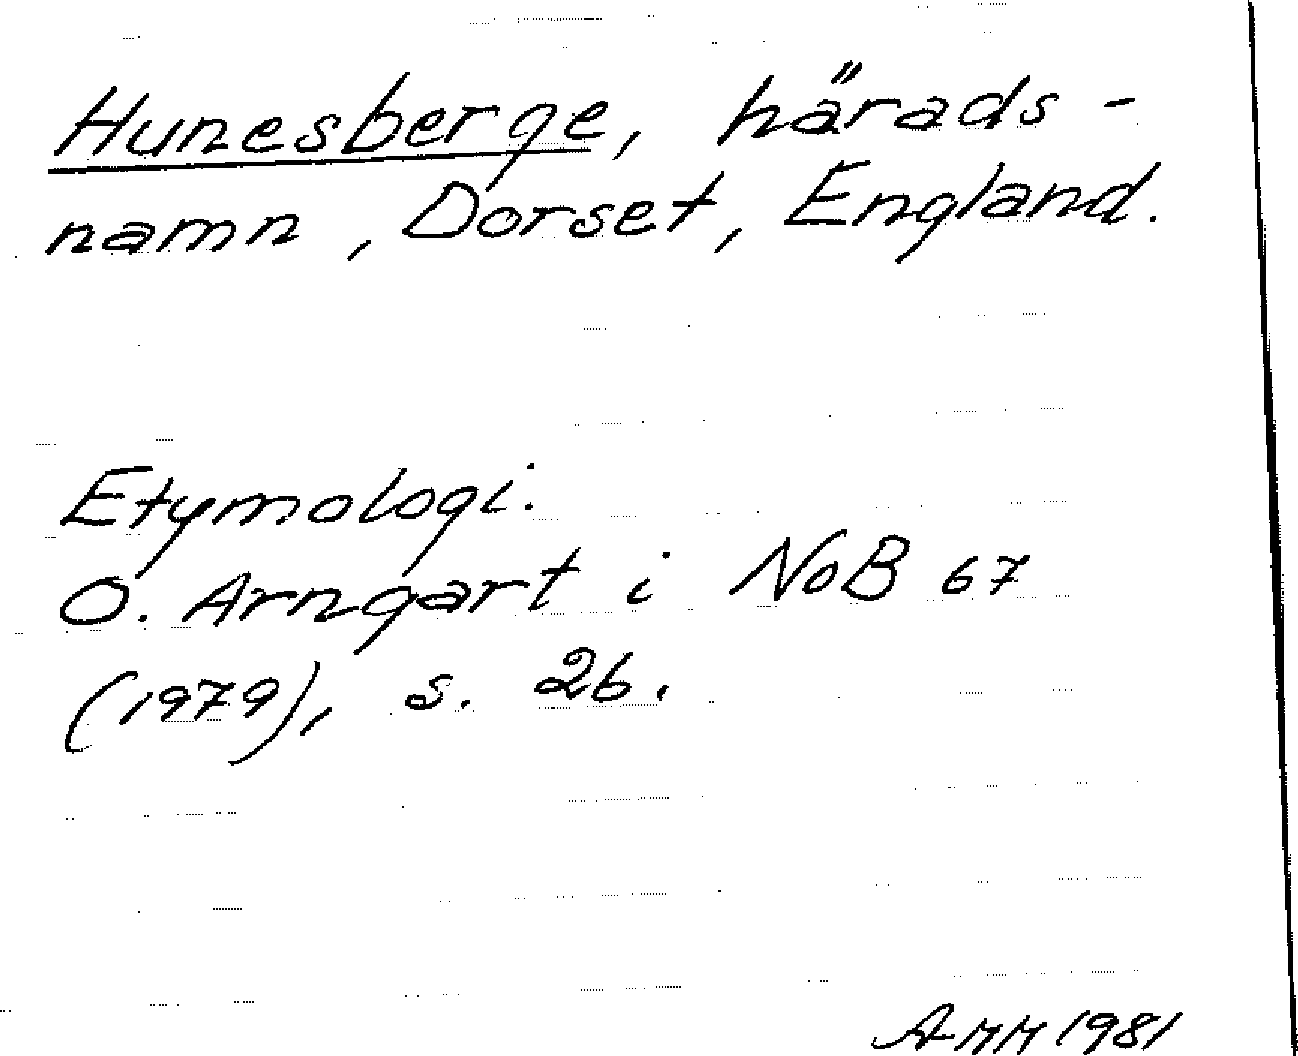 Hunesberge, härads-
namn, Dorset, England.
Etymologi.
O. Arngart i NoB 67
(1979), s. 26.
AMM 1981